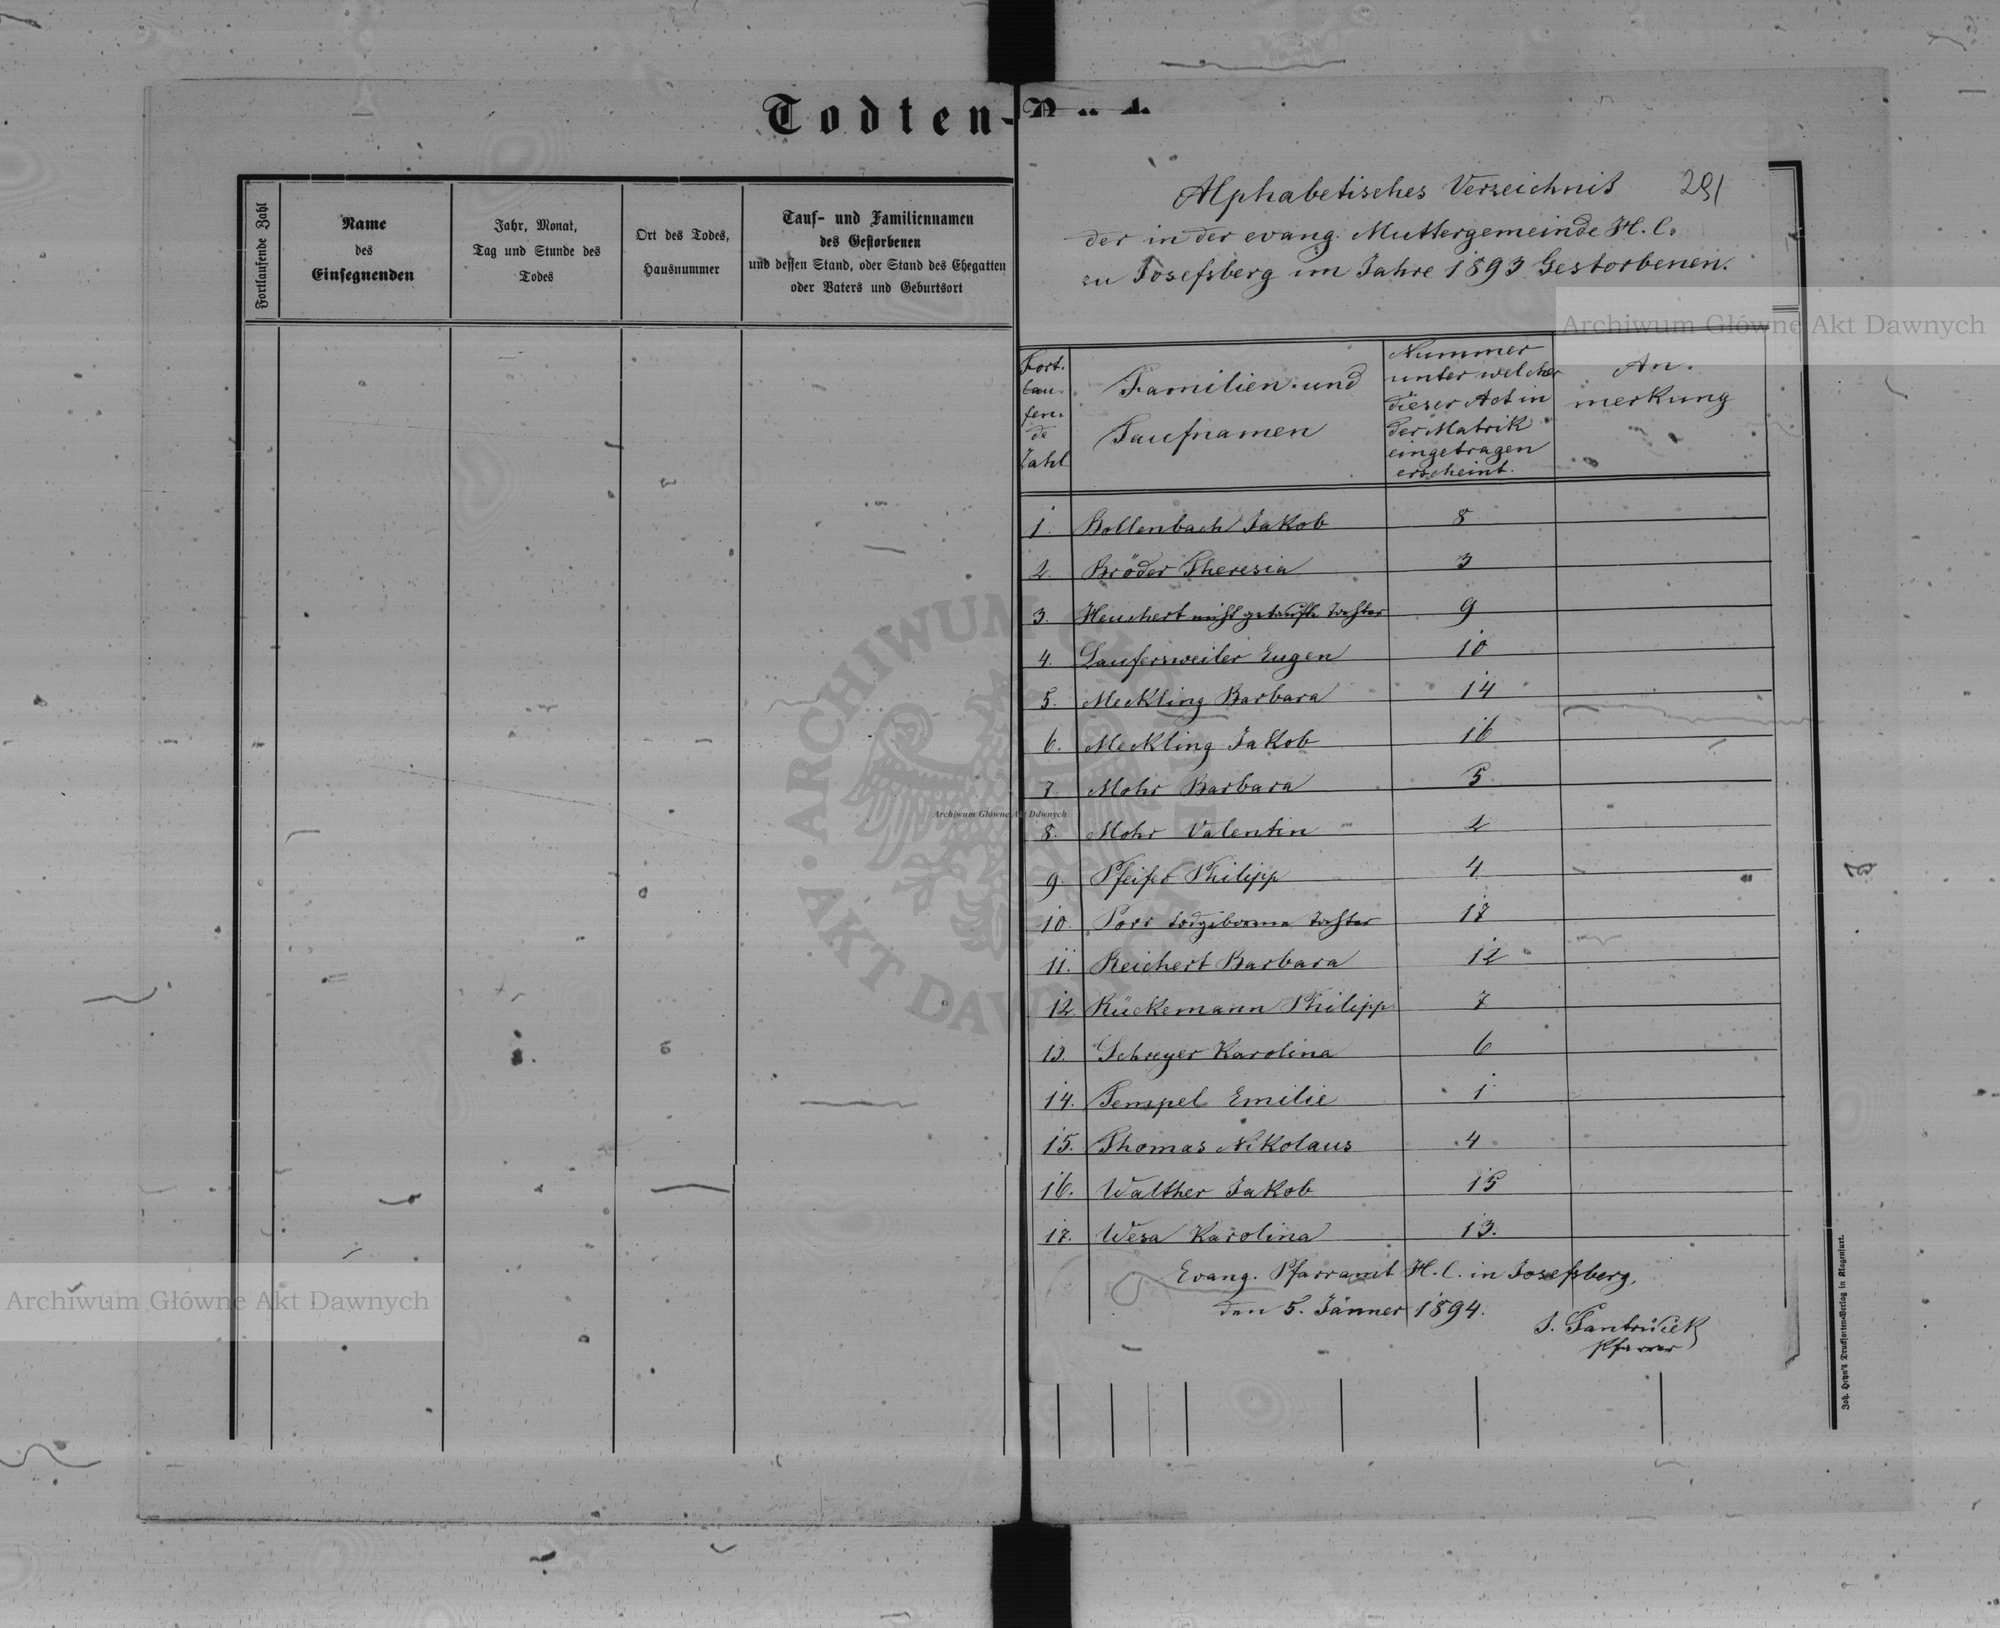 Todten-
Fortlaufende Zahl
Name
des
Einsegnenden
Jahr, Monat,
Tag und Stunde des
Todes
Ort des Todes,
Hausnummer
Tauf- und Familiennamen
des Gestorbenen
und dessen Stand, oder Stand des Ehegatten
oder Vaters und Geburtsort
Alphabetisches Verzeichniß 291
der in der evang. Muttergemeinde H. C.
zu Josefsberg im Jahre 1893 Gestorbenen.
Archiwum Główne Akt Dawnych
Fort-
lau-
fen-
de
Zahl
Familien- und
Taufnamen
Nummer
unter welcher
dieser Act in
der Matrik
eingetragen
erscheint.
An-
merkung
1. Bollenbach Jakob 8
2. Bröder Theresia 3
3. Heuchert nicht getaufte Tochter 9
4. Laufersweiler Eugen 10
5. Meckling Barbara 14
6. Meckling Jakob 16
7. Mohr Barbara 5
8. Mohr Valentin 2
9. Pfeifer Philipp 4
10. Porr todgeborene Tochter 17
11. Reichert Barbara 12
12. Rückemann Philipp 7
13. Schreyer Karolina 6
14. Tempel Emilie 1
15. Thomas Nikolaus 4
16. Walther Jakob 15
17. Wesa Karolina 13.
Evang. Pfarramt H. C. in Josefsberg,
den 5. Jänner 1894.
Pfarrer
Joh. Heyn's Drucksorten-Verlag in Klagenfurt.
ARCHIWUM GŁÓWNE AKT DAWNYCH
Archiwum Główne Akt Dawnych
Archiwum Główne Akt Dawnych